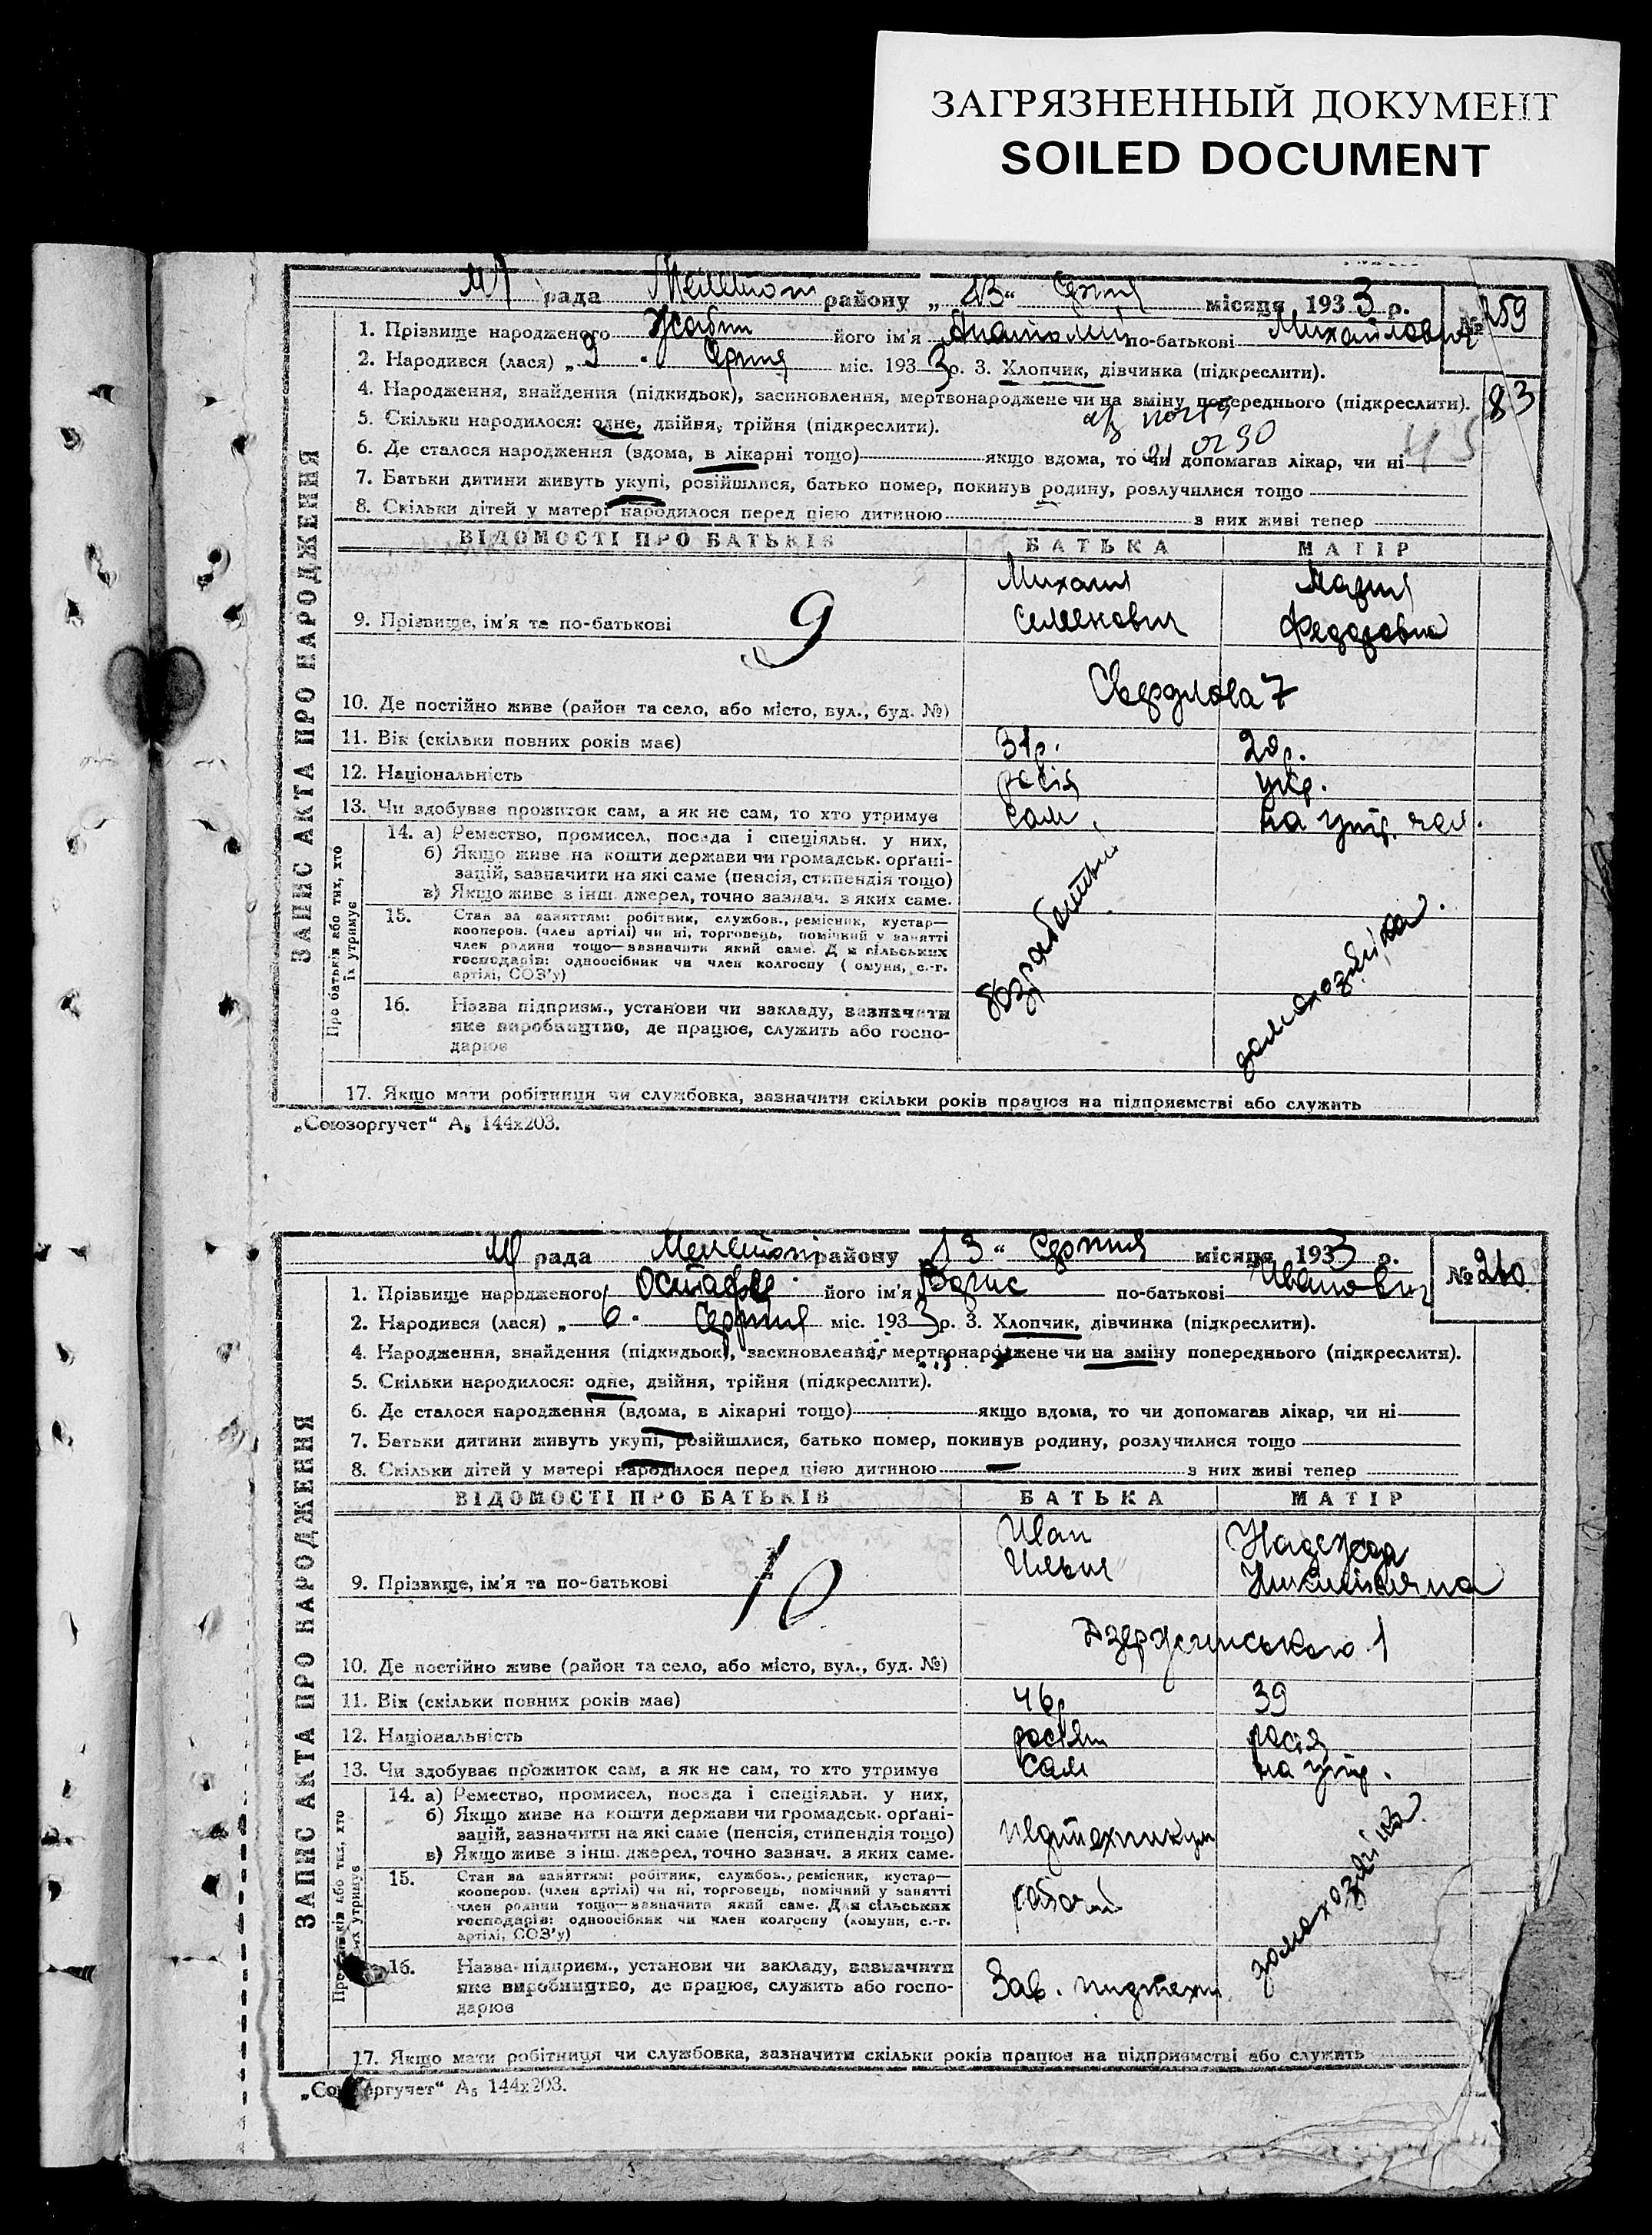 ЗАГРЯЗНЕННЫЙ ДОКУМЕНТ
SOILED DOCUMENT
рада району „13“ Серпня місяця 1933 р.
№ 259
1. Прізвище народженого його ім'я Анатолий по-батькові Михайлович
2. Народився (лася) „9 Серпня міс. 1933 р. 3. Хлопчик, дівчинка (підкреслити).
4. Народження, знайдення (підкидьок), засиновлення, мертвонароджене чи на зміну попереднього (підкреслити).
83
5. Скільки народилося: одне, двійня, трійня (підкреслити).
6. Де сталося народження (вдома, в лікарні тощо) якщо вдома, то чи допомагав лікар, чи ні
45
7. Батьки дитини живуть укупі, розійшлися, батько помер, покинув родину, розлучилися тощо
8. Скільки дітей у матері народилося перед цією дитиною з них живі тепер
ЗАПИС АКТА ПРО НАРОДЖЕННЯ
ВІДОМОСТІ ПРО БАТЬКІВ БАТЬКА МАТІР
Михаил Мария
9. Прізвище, ім'я та по-батькові 9 Семенович Федоровна
Свердлова 7
10. Де постійно живе (район та село, або місто, вул., буд. №)
11. Вік (скільки повних років має) 31р. 20р.
12. Національність росія укр.
13. Чи здобуває прожиток сам, а як не сам, то хто утримує сам на утр. чол.
Про батьків або тих, хто їх утримує
14. а) Ремество, промисел, посада і спеціяльн. у них,
б) Якщо живе на кошти держави чи громадськ. орґані-
зацій, зазначити на які саме (пенсія, стипендія тощо)
в) Якщо живе з інш. джерел, точно зазнач. з яких саме.
15. Стан за заняттям: робітник, службов., ремісник, кустар—
кооперов. (член артілі) чи ні, торговець, помічний у занятті
член родини тощо—зазначити який саме. Для сільських
господарів: одноосібник чи член колгоспу (комуни, с.-г.
артілі, СОЗ'у)
домохозяйка.
16. Назва підприєм., установи чи закладу, зазначити
яке виробництво, де працює, служить або госпо-
дарює
17. Якщо мати робітниця чи службовка, зазначити скільки років працює на підприємстві або служить
„Союзоргучет“ А₅ 144х203.
рада району 13“ Серпня місяця 1933 р.
№ 260
1. Прізвище народженого його ім'я Борис по-батькові Иванович
2. Народився (лася) „6 Серпня міс. 1933 р. 3. Хлопчик, дівчинка (підкреслити).
4. Народження, знайдення (підкидьок), засиновлення, мертвонароджене чи на зміну попереднього (підкреслити).
5. Скільки народилося: одне, двійня, трійня (підкреслити).
6. Де сталося народження (вдома, в лікарні тощо) якщо вдома, то чи допомагав лікар, чи ні
7. Батьки дитини живуть укупі, розійшлися, батько помер, покинув родину, розлучилися тощо
8. Скільки дітей у матері народилося перед цією дитиною — з них живі тепер
ЗАПИС АКТА ПРО НАРОДЖЕННЯ
ВІДОМОСТІ ПРО БАТЬКІВ БАТЬКА МАТІР
Иван Надежда
9. Прізвище, ім'я та по-батькові 10 Ильич
Дзержинського 1
10. Де постійно живе (район та село, або місто, вул., буд. №)
11. Вік (скільки повних років має) 46р 39
12. Національність росія
13. Чи здобуває прожиток сам, а як не сам, то хто утримує сам на утр.
14. а) Ремество, промисел, посада і спеціяльн. у них,
б) Якщо живе на кошти держави чи громадськ. орґані-
зацій, зазначити на які саме (пенсія, стипендія тощо)
в) Якщо живе з інш. джерел, точно зазнач. з яких саме.
15. Стан за заняттям: робітник, службов., ремісник, кустар—
кооперов. (член артілі) чи ні, торговець, помічний у занятті
член родини тощо—зазначити який саме. Для сільських
господарів: одноосібник чи член колгоспу (комуни, с.-г.
артілі, СОЗ'у)
домохозяйка.
16. Назва підприєм., установи чи закладу, зазначити
яке виробництво, де працює, служить або госпо- Зав.
дарює
17. Якщо мати робітниця чи службовка, зазначити скільки років працює на підприємстві або служить
А₅ 144х203.